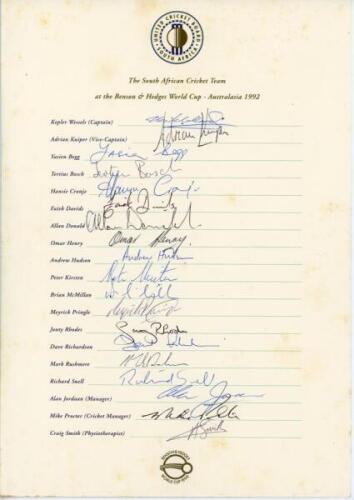 UNITED CRICKET BOARD
SOUTH AFRICA
The South African Cricket Team
at the Benson & Hedges World Cup - Australasia 1992
Kepler Wessels (Captain)
Adrian Kuiper (Vice-Captain) Adrian Kuiper
Yasien Begg Yasien Begg
Tertius Bosch Tertius Bosch
Hansie Cronje
Faiek Davids Faiek Davids
Allan Donald Allan Donald
Omar Henry Omar Henry.
Andrew Hudson Andrew Hudson
Peter Kirsten
Brian McMillan
Meyrick Pringle
Jonty Rhodes
Dave Richardson
Mark Rushmere
Richard Snell Richard Snell
Alan Jordaan (Manager)
Mike Procter (Cricket Manager)
Craig Smith (Physiotherapist)
BENSON & HEDGES
WORLD CUP 1992